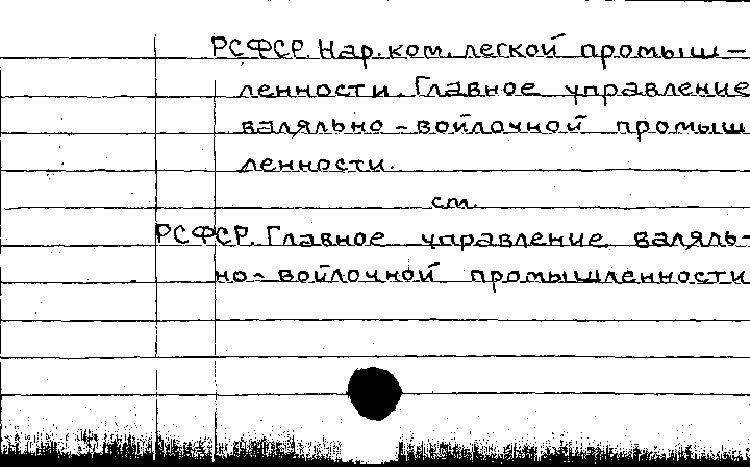 РСФСР. Нар. ком. легкой промыш-
ленности. Главное управление
валяльно-войлочной промыш
ленности.
см.
РСФСР. Главное управление валяль-
но-войлочной промышленности